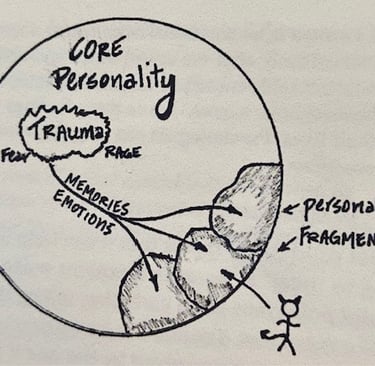 CORE
Personality
TRAUMA
Fear
RAGE
MEMORIES
EMOTIONS
persona
FRAGMEN